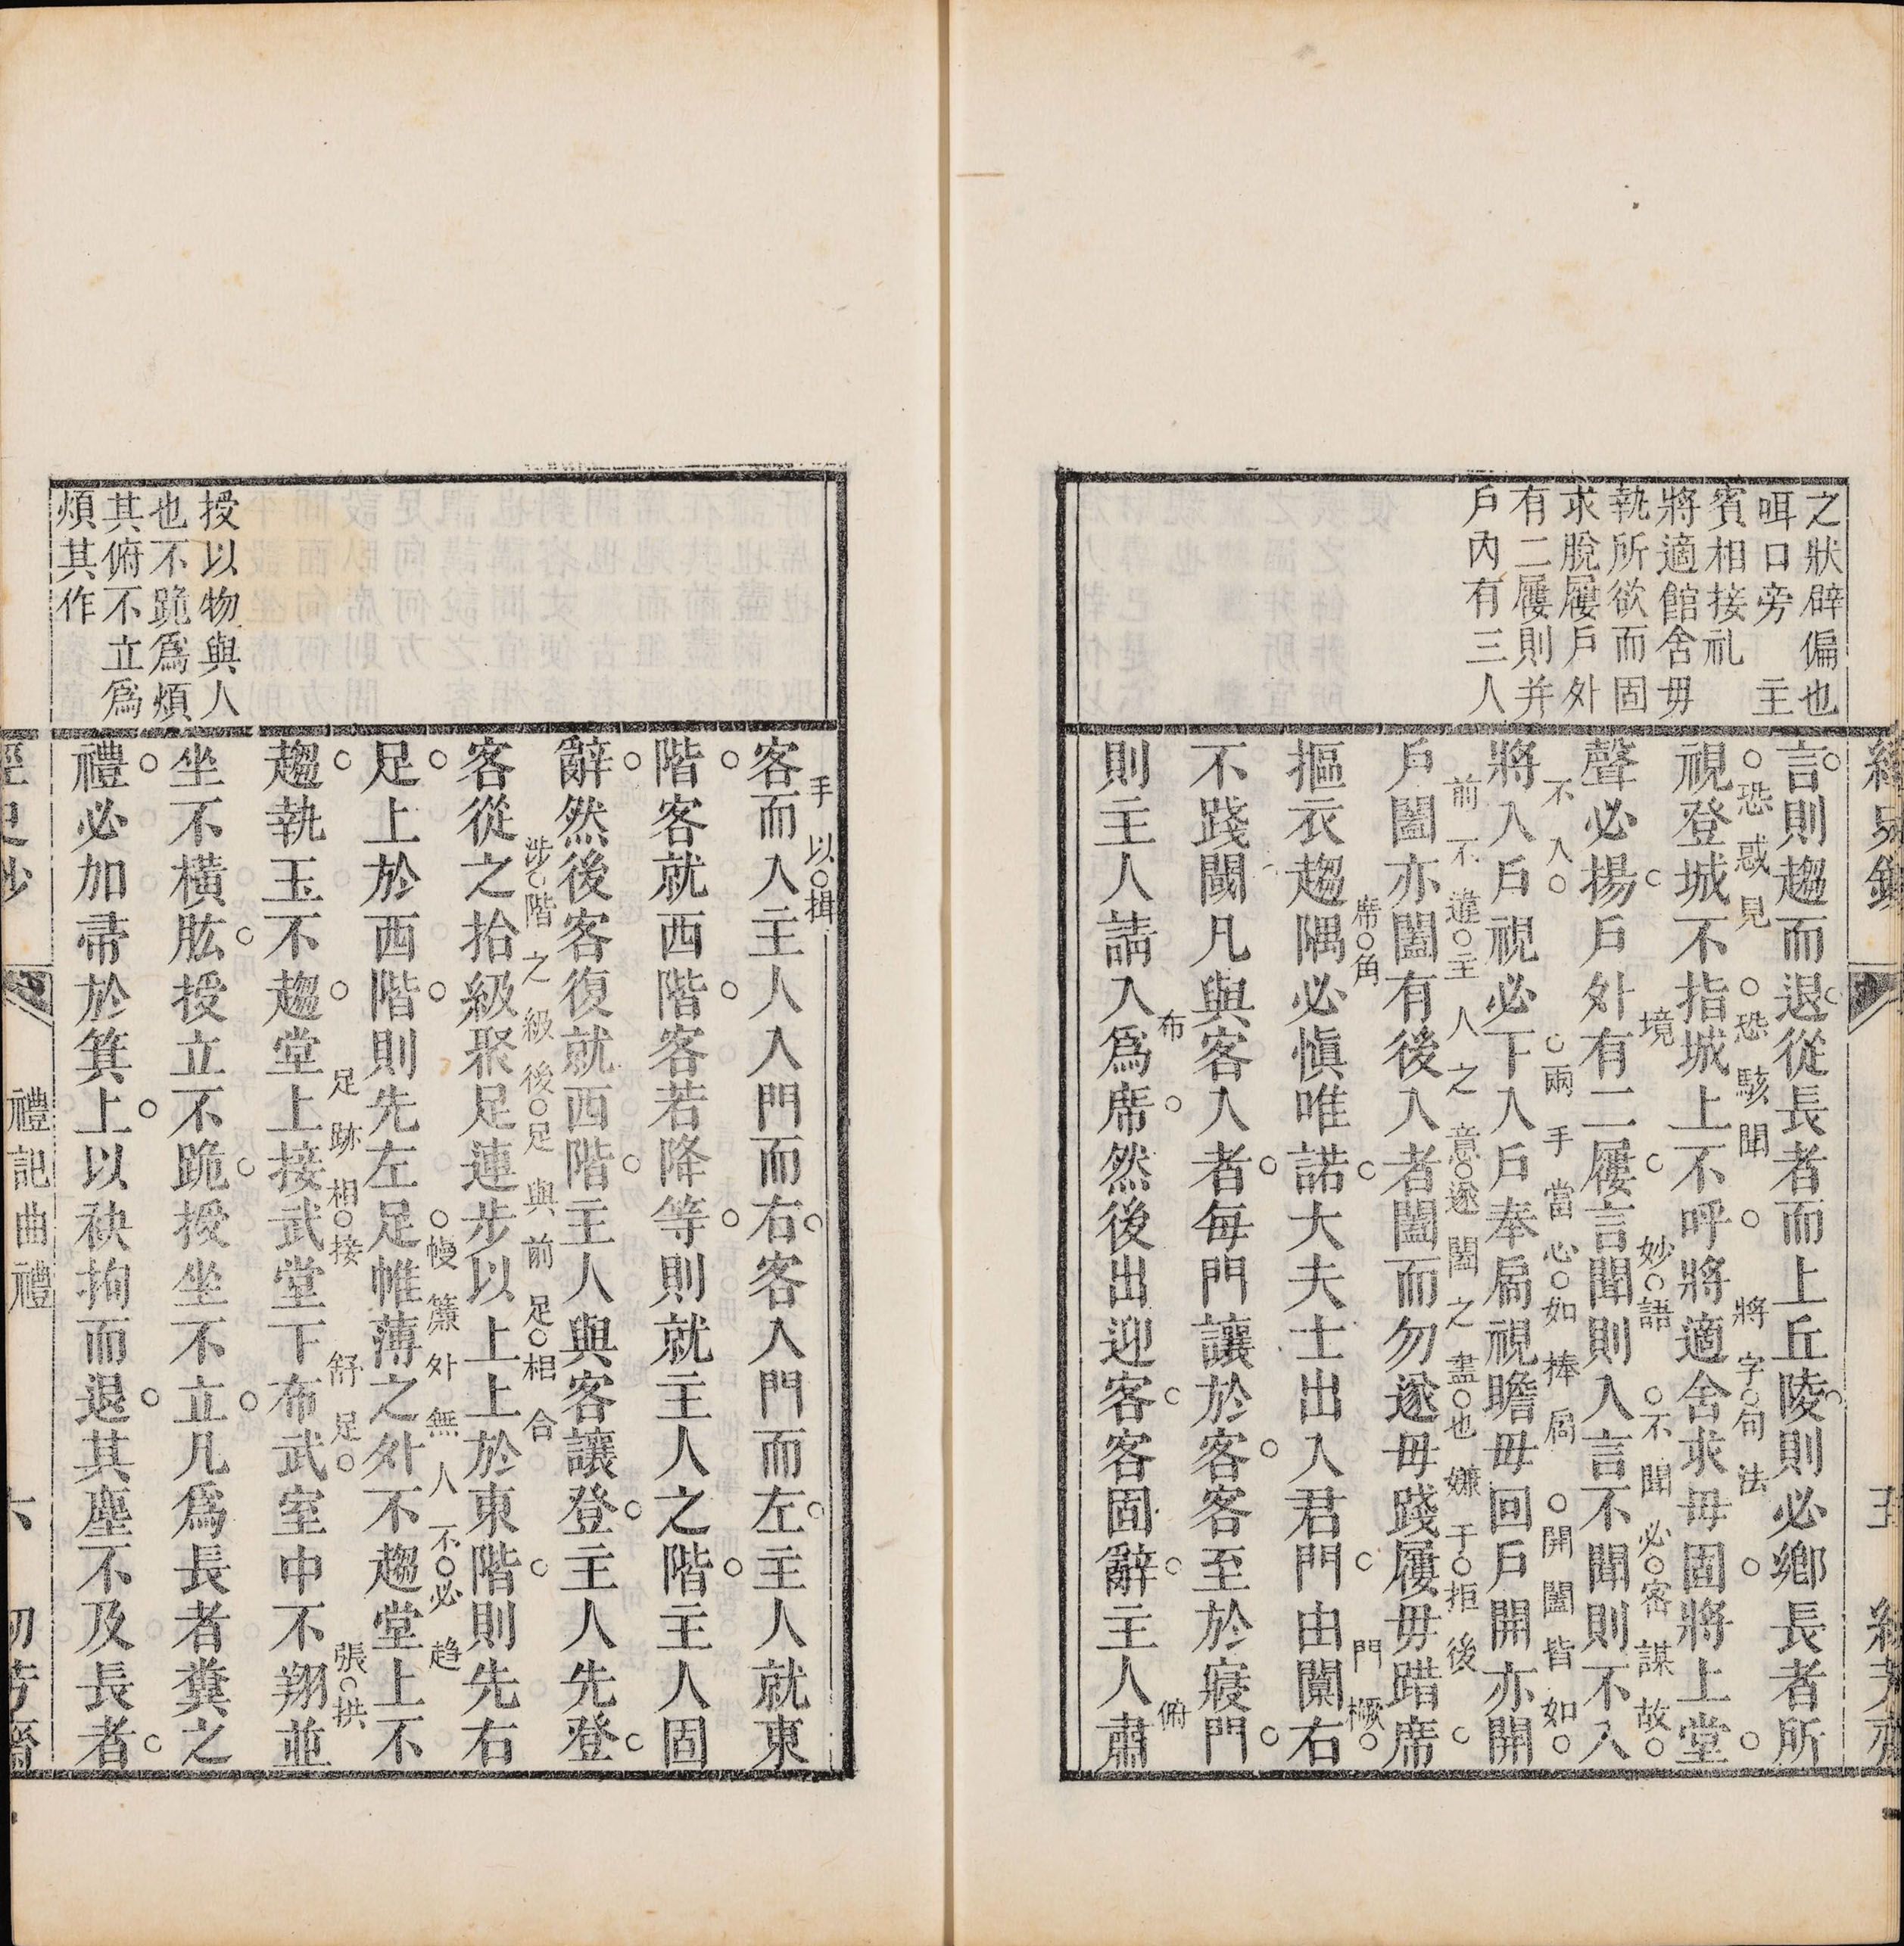 之狀辟偏也
咡口旁　主
賓相接礼
將適館舍毋
執所欲而固
求脫屨戶外
有二屨則并
戶內有三人
言則趨而退從長者而上丘陵則必鄉長者所
恐惑見　恐駭聞　將字句法
視登城不指城上不呼將適舍求毋固將上堂
境　妙語　不聞必密謀故
聲必揚戶外有二屨言聞則入言不聞則不入
不入　兩手當心如捧扃　開闔皆如
將入戶視必下入戶奉扃視瞻毋回戶開亦開
前不違主人之意遂闔之盡也嫌于拒後
戶闔亦闔有後入者闔而勿遂毋踐屨毋踖席
席角　門橛
摳衣趨隅必愼唯諾大夫士出入君門由闑右
不踐閾凡與客入者每門讓於客客至於寢門
布　俯
則主人請入爲席然後出迎客客固辭主人肅
五
授以物與人
也不跪爲煩
其俯不立爲
煩其作
手以揖
客而入主人入門而右客入門而左主人就東
階客就西階客若降等則就主人之階主人固
辭然後客復就西階主人與客讓登主人先登
涉階之級後足與前足相合
客從之拾級聚足連步以上上於東階則先右
幔簾外無人不必趋
足上於西階則先左足帷薄之外不趨堂上不
足跡相接　舒足　張拱
趨執玉不趨堂上接武堂下布武室中不翔並
坐不橫肱授立不跪授坐不立凡爲長者糞之
禮必加帚於箕上以袂拘而退其塵不及長者
禮記曲禮　六